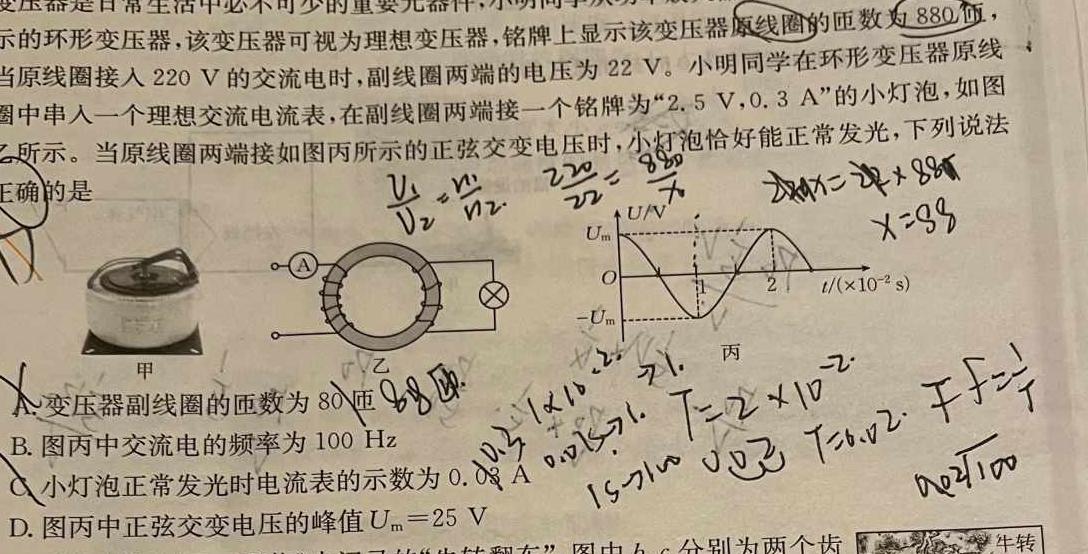 变压器是日常生活中必不可少的重要元器件,小明同学从
示的环形变压器,该变压器可视为理想变压器,铭牌上显示该变压器原线圈的匝数为 880 匝,
当原线圈接入 220 V 的交流电时,副线圈两端的电压为 22 V。小明同学在环形变压器原线
圈中串入一个理想交流电流表,在副线圈两端接一个铭牌为“2.5 V,0.3 A”的小灯泡,如图
乙所示。当原线圈两端接如图丙所示的正弦交变电压时,小灯泡恰好能正常发光,下列说法
正确的是
U₁/U₂ = n₁/n₂
220/22 = 880/x
x=88
U/V
Um
O
1
2
t/(×10⁻² s)
-Um
A
甲
乙
丙
A. 变压器副线圈的匝数为 80 匝
88匝.
B. 图丙中交流电的频率为 100 Hz
C. 小灯泡正常发光时电流表的示数为 0.03 A
D. 图丙中正弦交变电压的峰值 Um=25 V
T=2×10⁻²
T=0.02
f=1/T
1s→100
0.01s→1.
图中 b、c 分别为两个齿
牛转